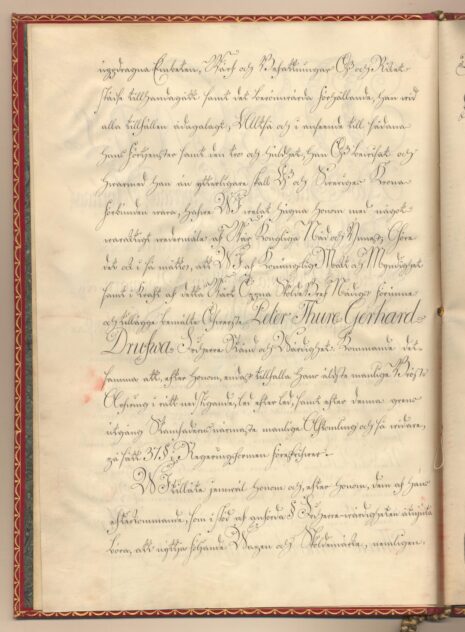 uppdragna Embeten, Värf och Befattningar Oss och Riket
städse tillhandagått samt det berömvärda förhållande, han vid
alla tillfällen ådagalagt, Alltså och i anseende till sådana
hans förtjenster samt den tro och huldhet, han Oss bevisat och
hvarmed han än ytterligare skall Oss och Sveriges Krona
förbunden vara, hafve Wi velat hugna honom med något
varaktigt vedermäle af Vår Kongliga Nåd och Ynnest, Göre
det ock i så måtto, att Wi af Konunglig Makt och Myndighet
samt i Kraft af detta Vårt Öppna Sköldebref Nådigst förunne
och tillägge bemälte Öfverste Peter Thure Gerhard
Drufva Friherre Stånd och Värdighet. Kommande det-
samma att, efter honom, endast tillfalla hans äldste manlige Bröst
Arfvinge i rätt nedstigande led efter led, samt efter denna grens
utgång Stamfaderns närmaste manlige Afkomling och så vidare,
på sätt 37 § i Regeringsformen föreskrifver.
Wi tillåte jemväl honom och, efter honom, dem af hans
efterkommande, som i stöd af anförda § Friherre-värdigheten åtnjuta
böra, att nyttja följande Wapen och Sköldemärke, nemligen: